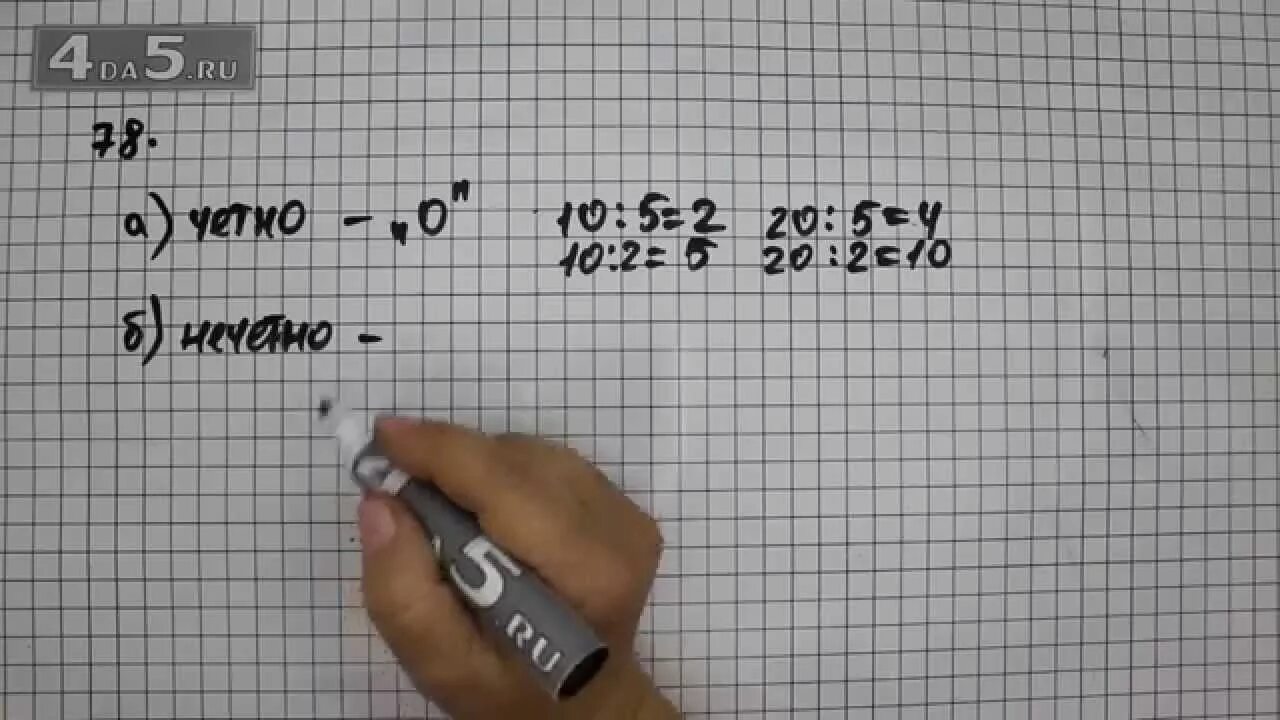 4DA5.RU
78.
а) четно - „0" 10:5=2 20:5=4
10:2=5 20:2=10
б) нечетно -
5.RU